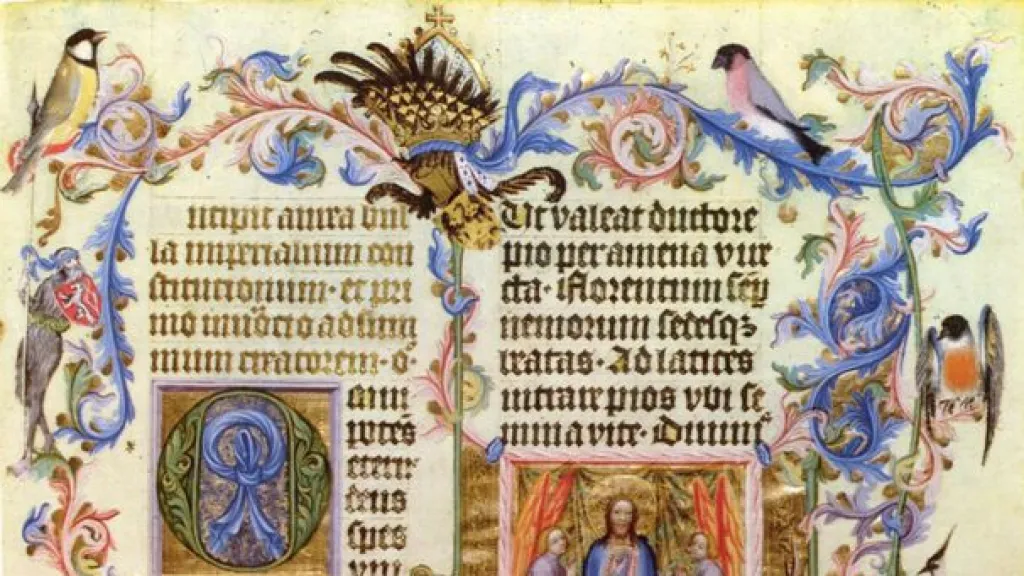 ncipit aurea bul
la imperialium con
stitutionum · et pri
mo inuocͦtio ad sum
mum creatorem · O
mni
potēs
eterne
deus
spes
vni
Ut valeat ductore
pio per amena vire
cta · Florentum
nemorum sedesqꝫ
beatas · Ad latices
intrare pios vbi se
mina vite · Diuinıˢ